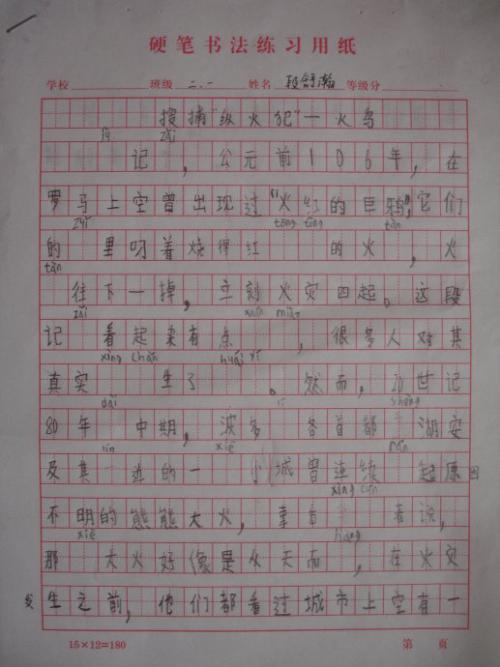 硬笔书法练习用纸
学校 班级 二.一 姓名 段舒瀚 等级分
搜捕“纵火犯”—火鸟
zǎi
记，公元前106年，在
罗马上空曾出现过“火红的巨鸦”，它们
zuǐ tōng tàn
的 里叼着烧得红 的火 ，火
tàn
往下一掉，立刻火灾四起。这段
zǎi
记 看起来有点 ，很多人对其
xìng chǎn huái yí
真实 生了 。然而，20世记
dài
80年 中期，波多 各首都 湖安
lín xiē
及其 近的一 小城曾连续 起原因
xìng cún
不明的熊熊大火，幸 者说，
xiē
那 大火好像是从天而 ，在火灾
发生之前，他们都看过城市上空有一
15×12=180 第 页